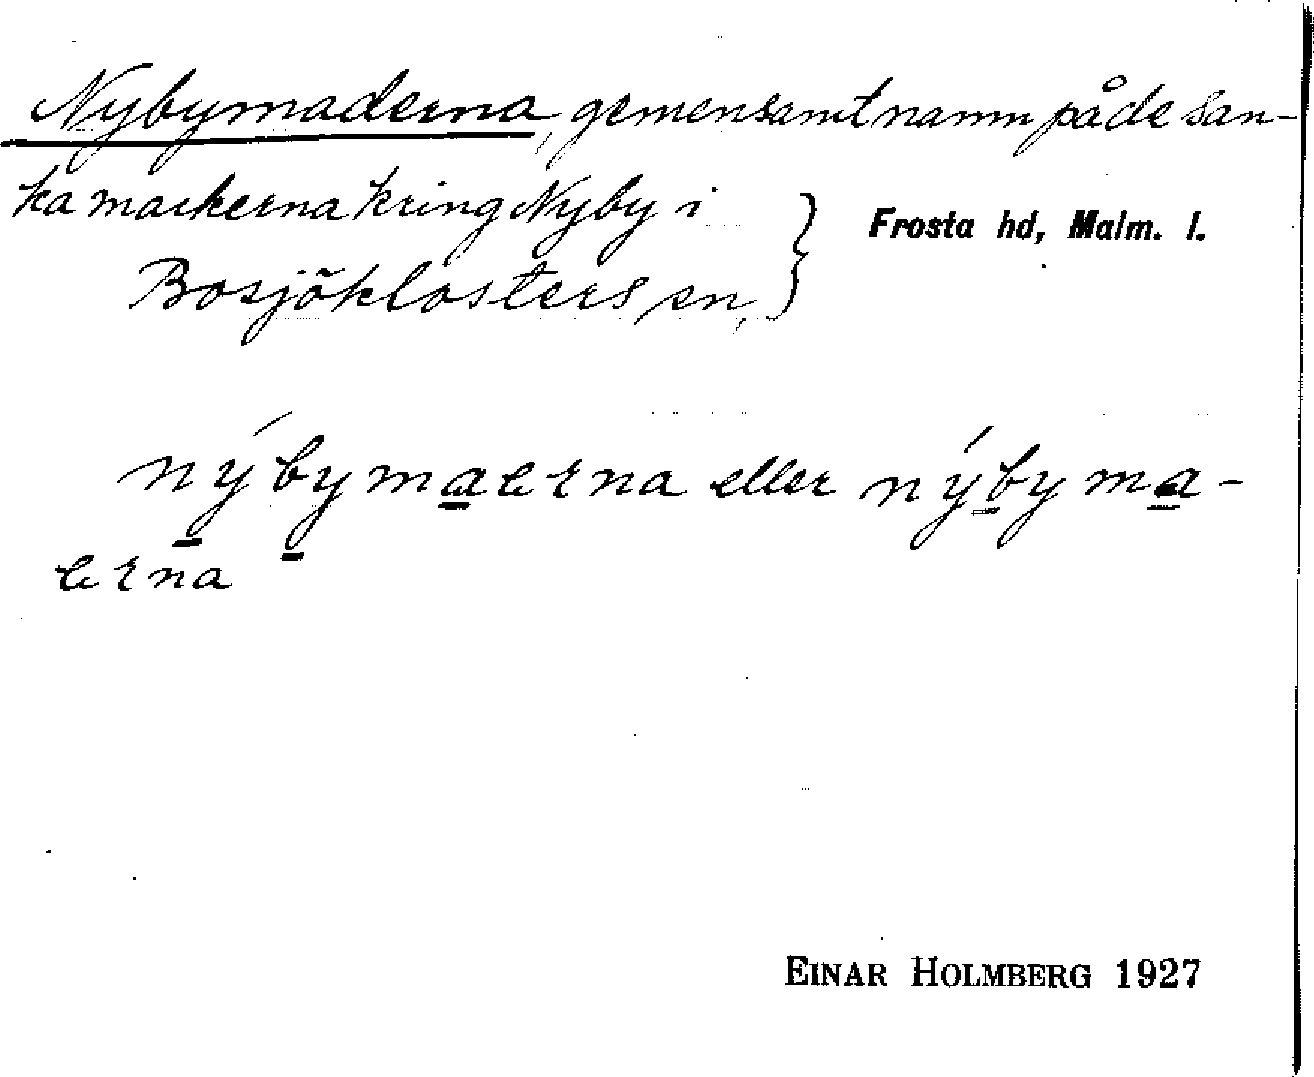 Nybymaderna, gemensamt namn på de san-
ka markerna kring Nyby i
Bosjöklosters sn,
} Frosta hd, Malm. l.
nýbymaerna eller nýbyma-
erna
EINAR HOLMBERG 1927